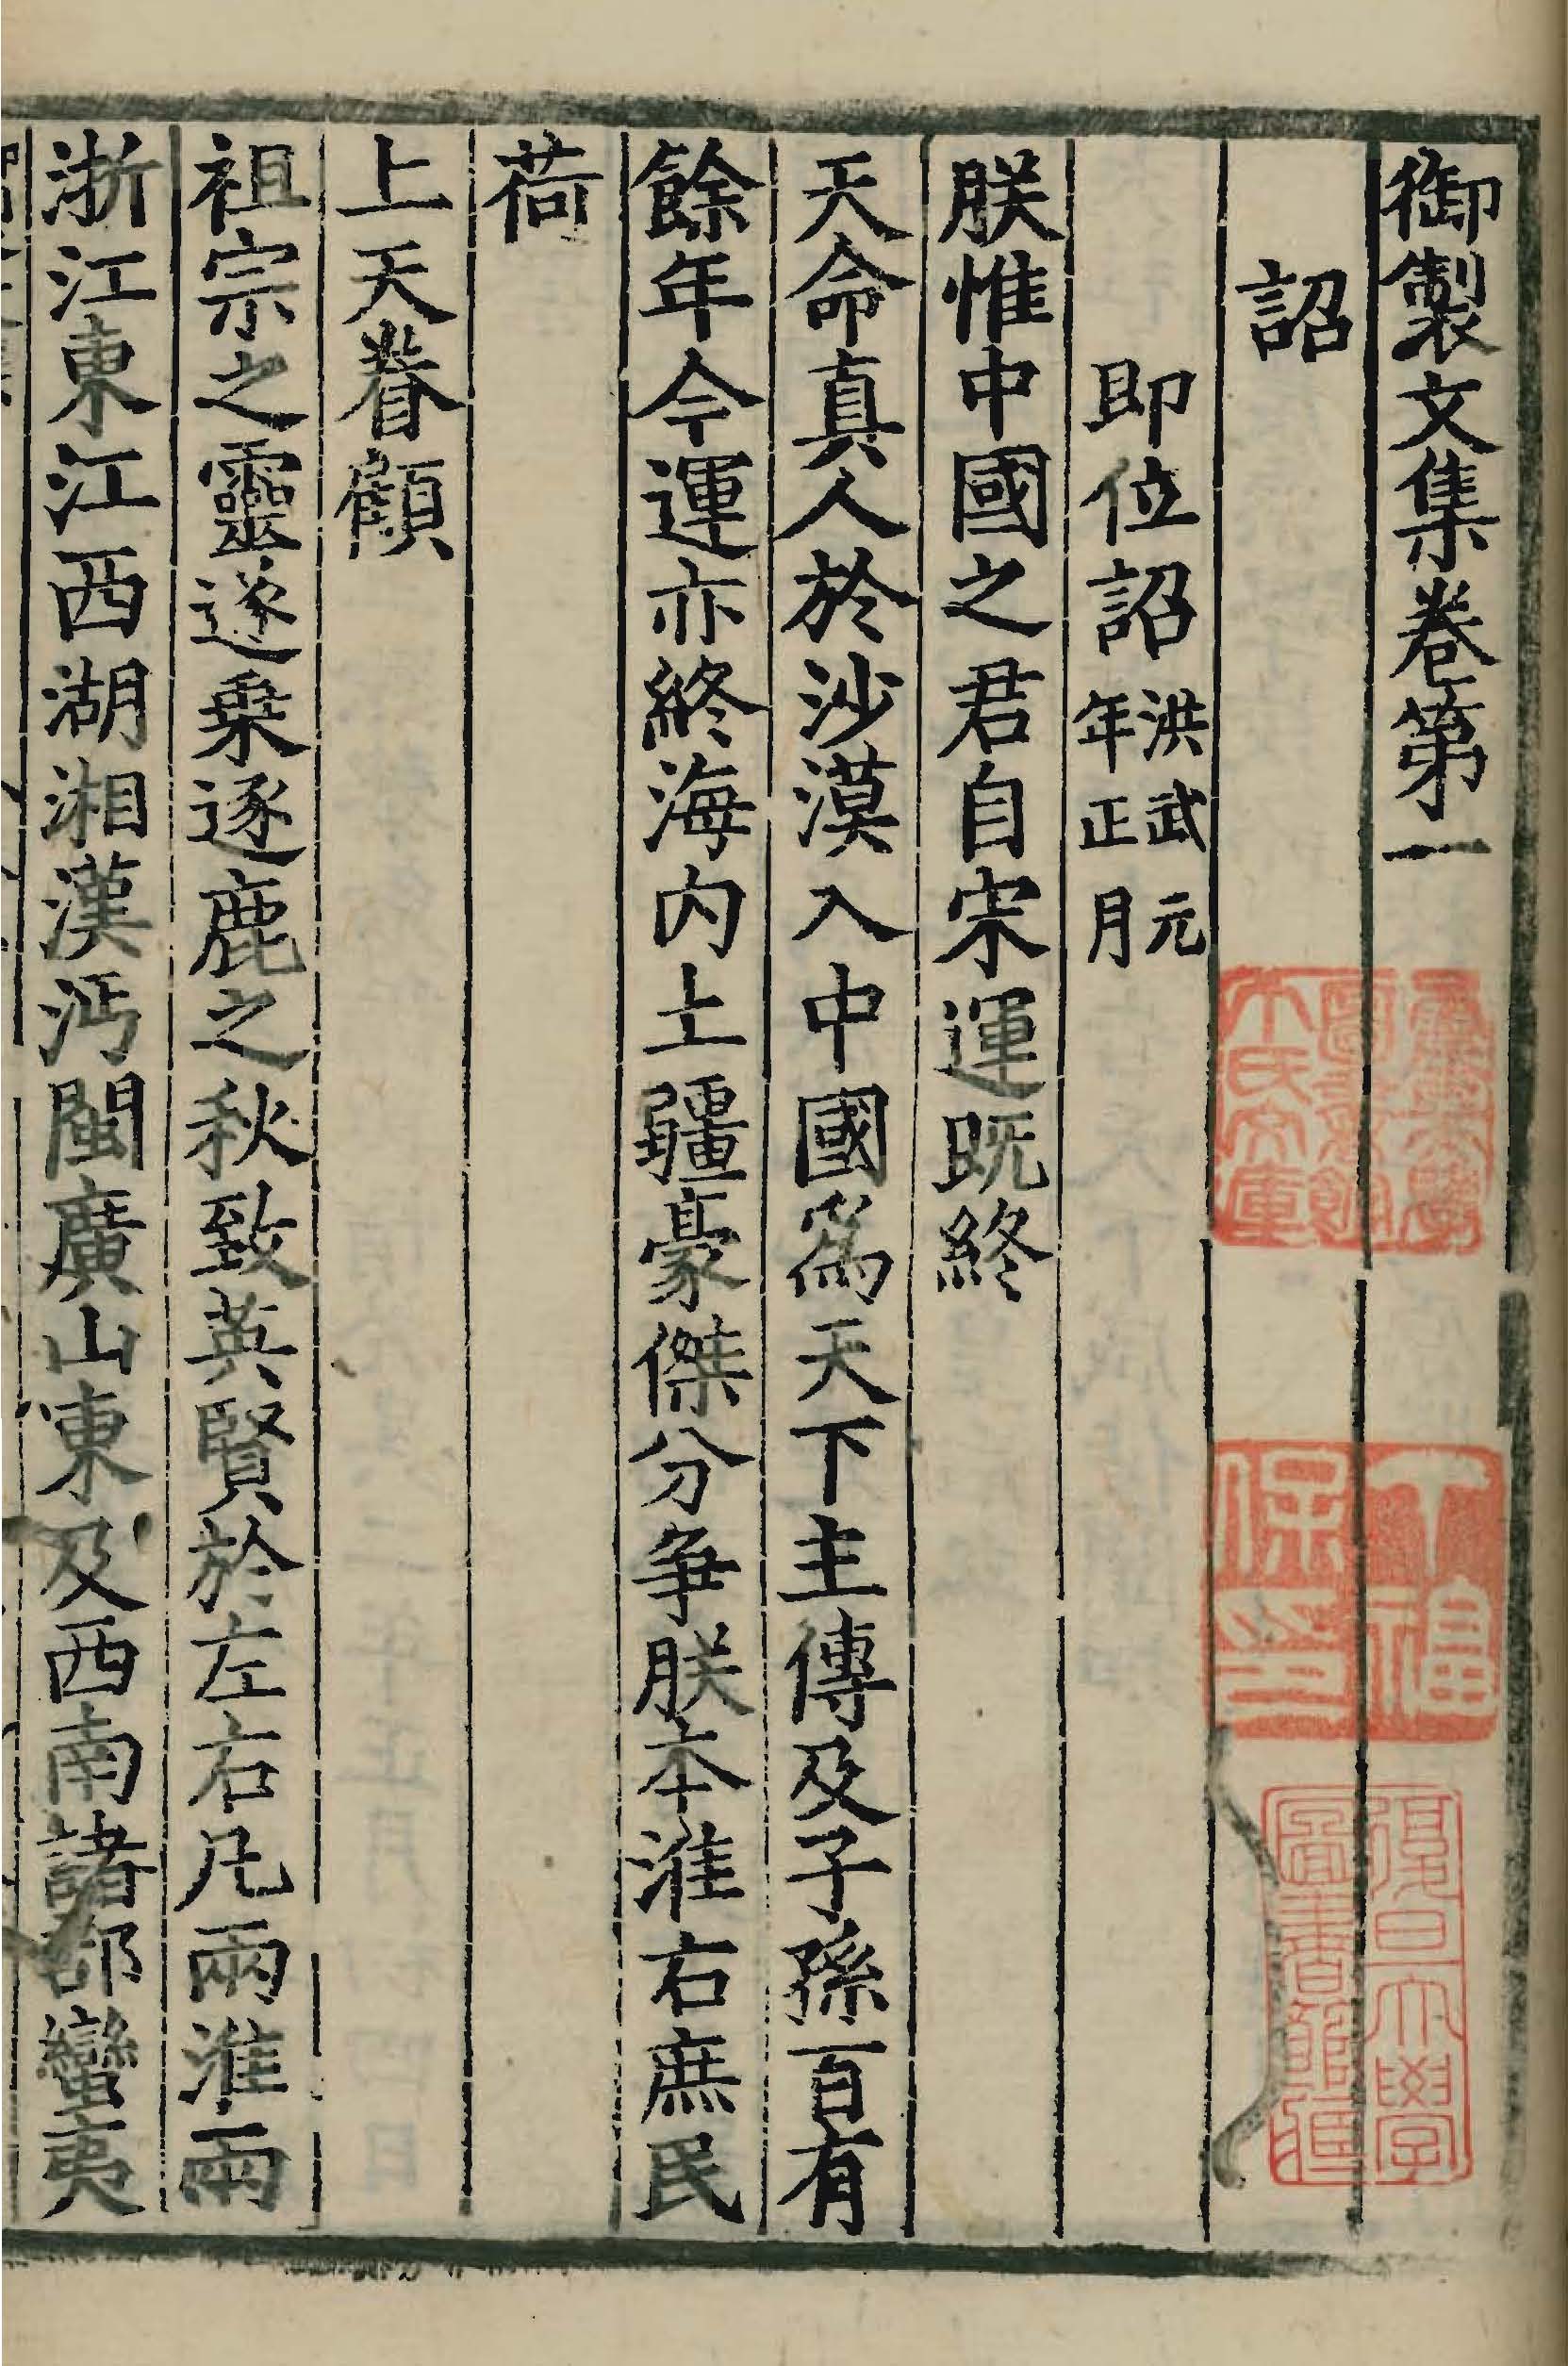 御製文集卷第一
詔
即位詔 洪武元年正月
朕惟中國之君自宋運既終
天命真人於沙漠入中國為天下主傳及子孫百有
餘年今運亦終海內土疆豪傑分爭朕本淮右庶民
荷
上天眷顧
祖宗之靈遂乗逐鹿之秋致英賢於左右凡兩淮兩
浙江東江西湖湘漢沔閩廣山東及西南諸部蠻夷